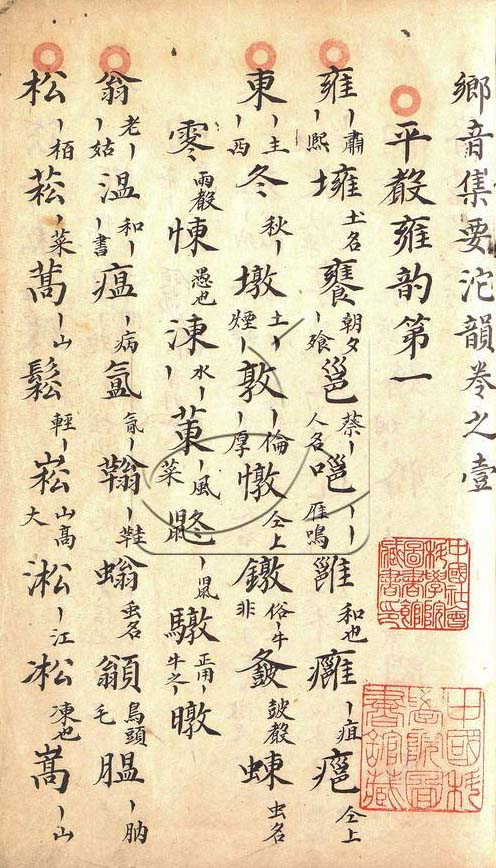 鄉音集要沱韻卷之壹
平殸雍韵第一
雍丨肅丨熙㙲土名饔朝夕丨飧邕蔡丨人名嗈丨丨雁鳴雝和也癰丨疽仝上
東丨主丨西冬秋丨墩土丨煙丨敦丨倫丨厚憞仝上鐓俗丨牛非鼓殸蝀虫名
零雨殸悚愚也涷水丨菄丨風菜丨鼠驐正用丨牛之丨暾
翁老丨丨姑温和丨丨書瘟丨病氲氤丨丨鞋螉虫名鳥頭毛膃丨肭
松丨栢菘丨菜丨山鬆輕丨崧山高大淞丨江凇凍也嵩丨山
中國社會科學院圖書館藏書印
中國科學院圖書館藏